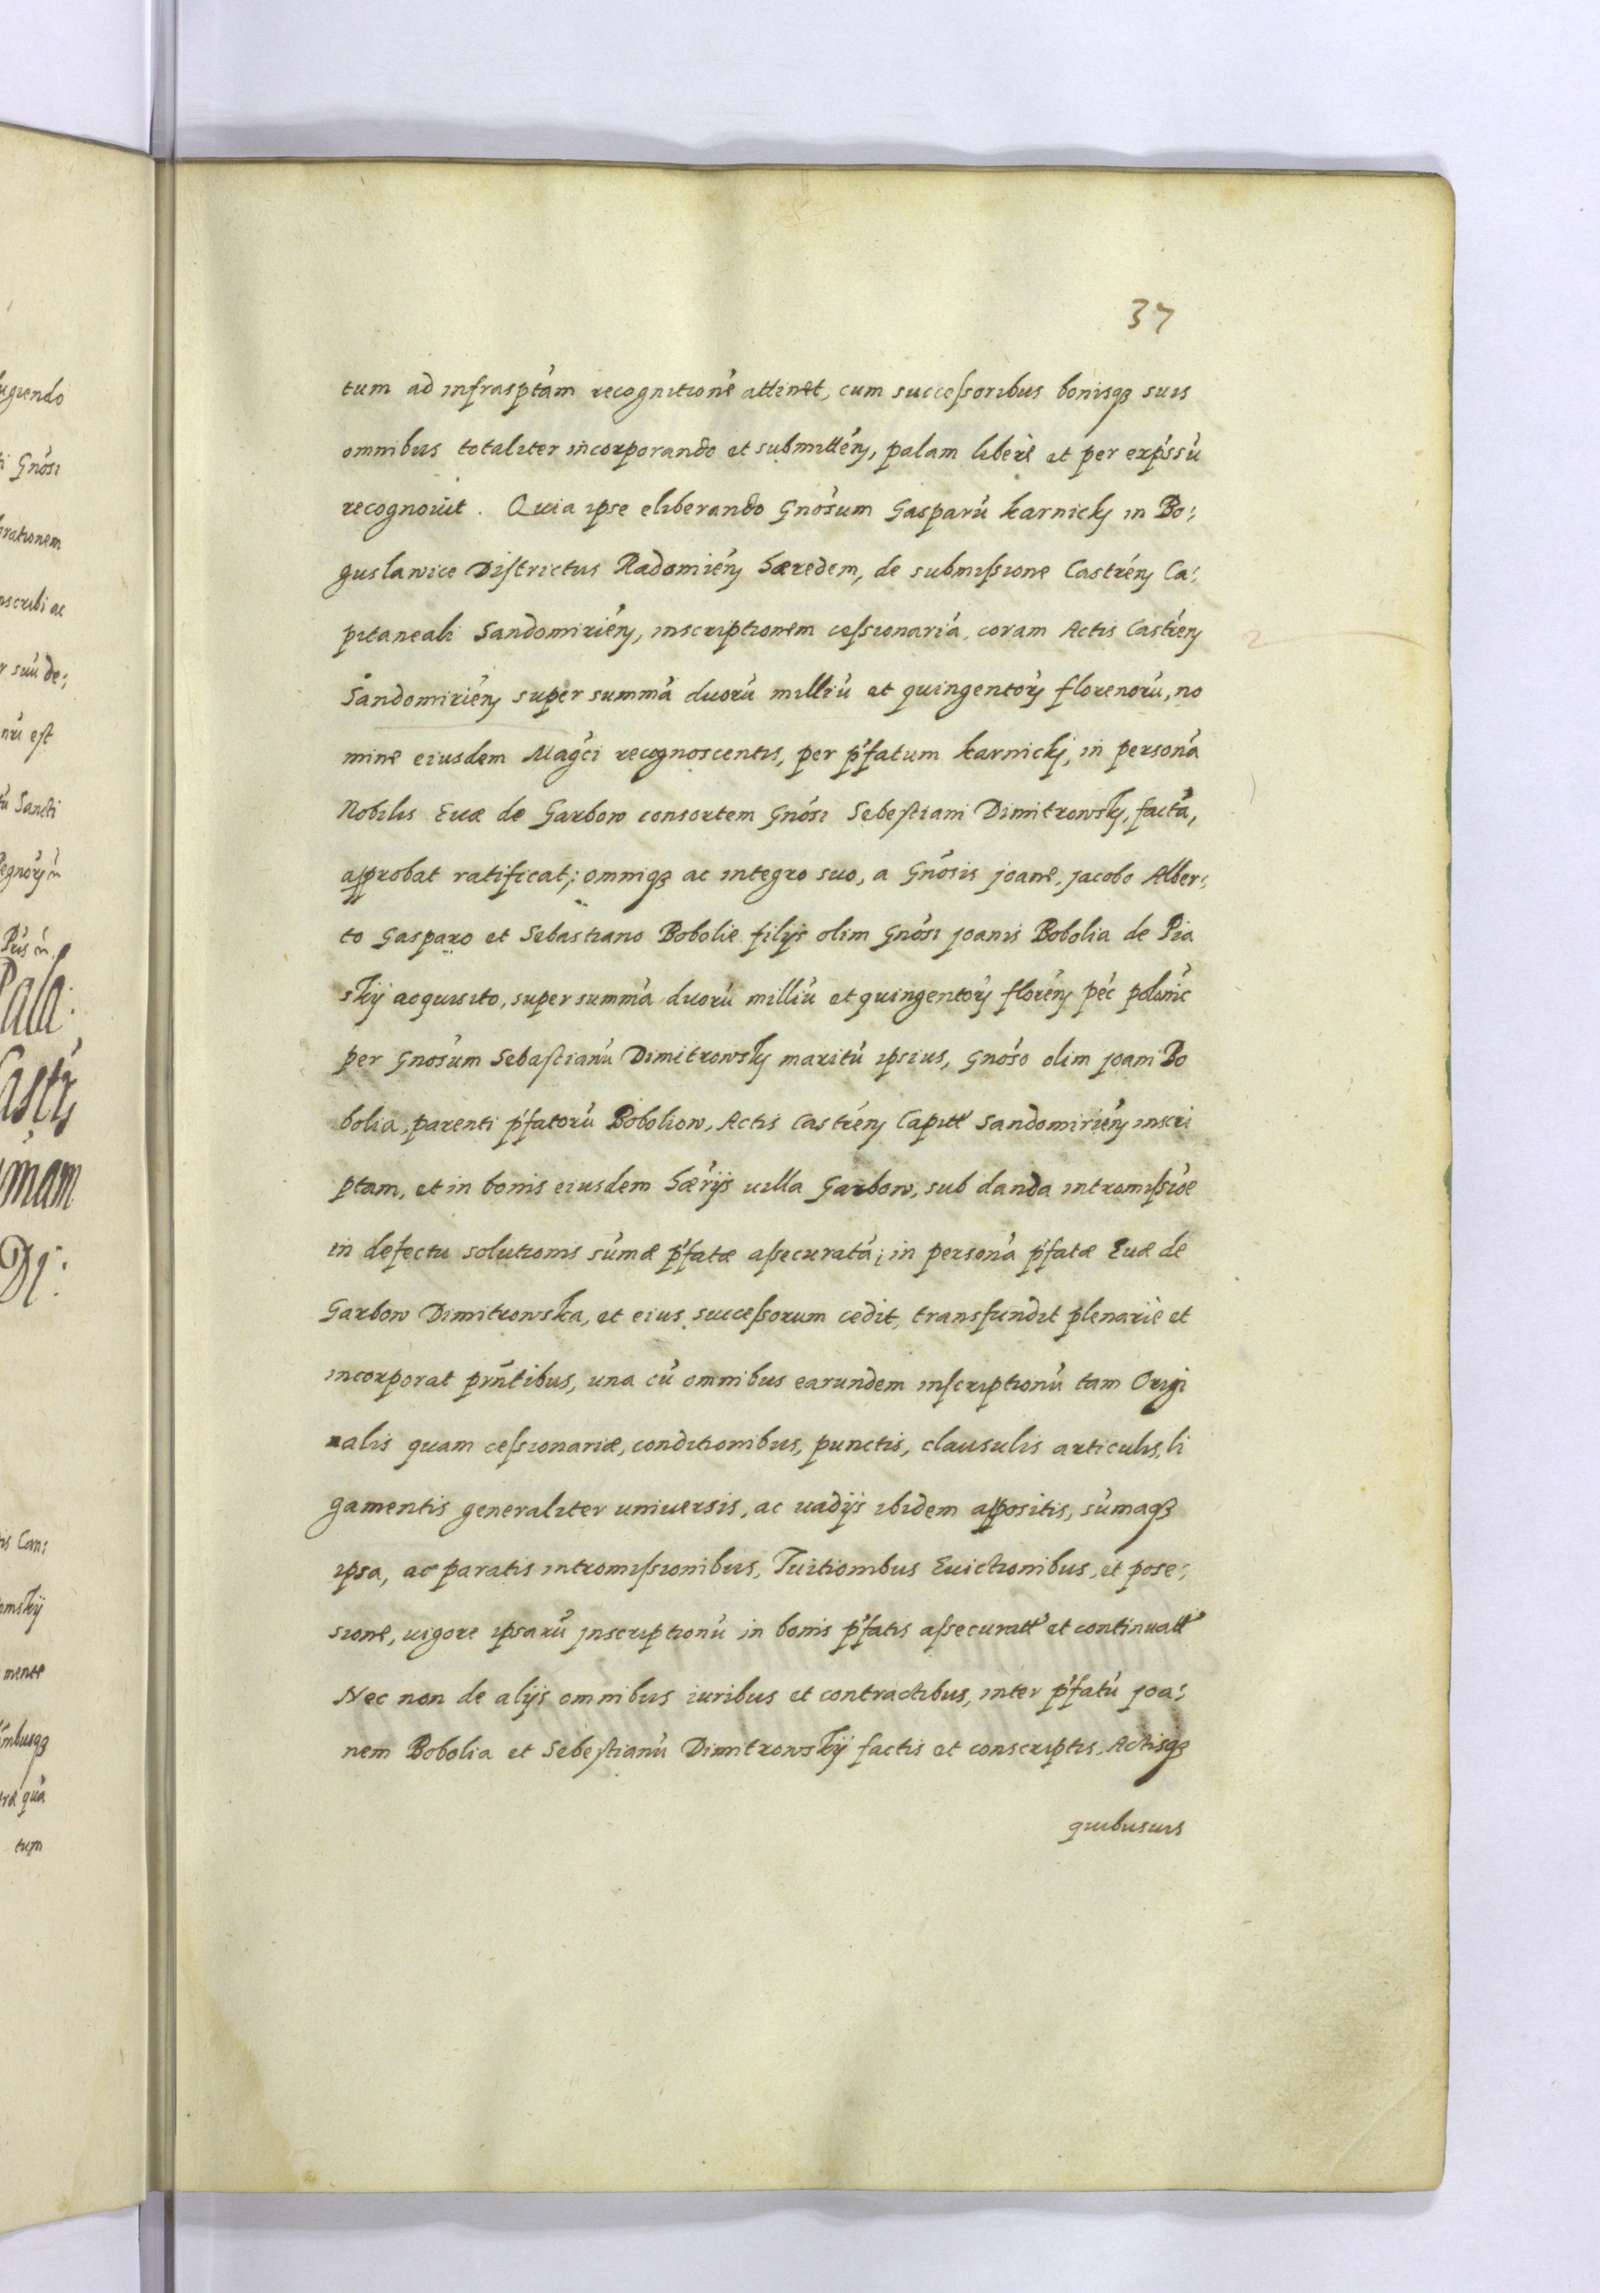 37
tum ad infrasptám recognitioné attinet, cum successoribus bonisq3 suis
omnibus totaliter incorporando et submittén, palam liberè et per exṕssú
recognovit. Quia ipse eliberando Gnósum Gasparú Karnickj in Bo:
guslawice Districtus Radomién hæredem, de submissione Castrén Ca:
pitaneali Sandomirién, inscriptionem cessionariá, coram Actis Castrén
Sandomirién super summá duorú milliú et quingentorj florenorú, no
mine eiusdem Magci recognoscentis, per ṕfatum Karnickj, in personá
Nobilis Evæ de Garbow consortem Gnósi Sebestiani Dimitrowskj, factá,
approbat ratificat; omniq3 ac integro suo, a Gnósis joane, jacobo Alber:
to Gasparo et Sebastiano Bobolie filijs olim Gnósi joanis Bobolia de Pia
skij acquisito, super summá duorú milliú et quingentorj florén péc polonic
per Gnósum Sebastianú Dimitrowskj maritú ipsius, Gnóso olim joani Bo
bolia, parenti ṕfatorú Bobolion, Actis Castrén Capitt Sandomirién inscri
ptam, et in bonis eiusdem hærijs villa Garbow, sub danda intromissióe
in defectu solutionis súmæ ṕfatæ assecuratá; in personá ṕfatæ Evæ de
Garbow Dimitrowska, et eius successorum cedit, transfundit plenariè et
incorporat prñtibus, una cú omnibus earundem inscriptionú tam Origi
nalis quam cessionariæ, conditionibus, punctis, clausulis articulis, li
gamentis generaliter universis, ac vadijs ibidem appositis, súmaq3
ipsa, ac paratis intromissionibus, Tuitionibus Evictionibus, et pose:
sione, vigore ipsarú jnscriptionú in bonis ṕfatis assecuratt et continuatt
Nec non de alijs omnibus iuribus et contractibus, inter ṕfatú joa:
nem Bobolia et Sebestianú Dimitrowskij factis et conscriptis, Actisq3
quibusvis